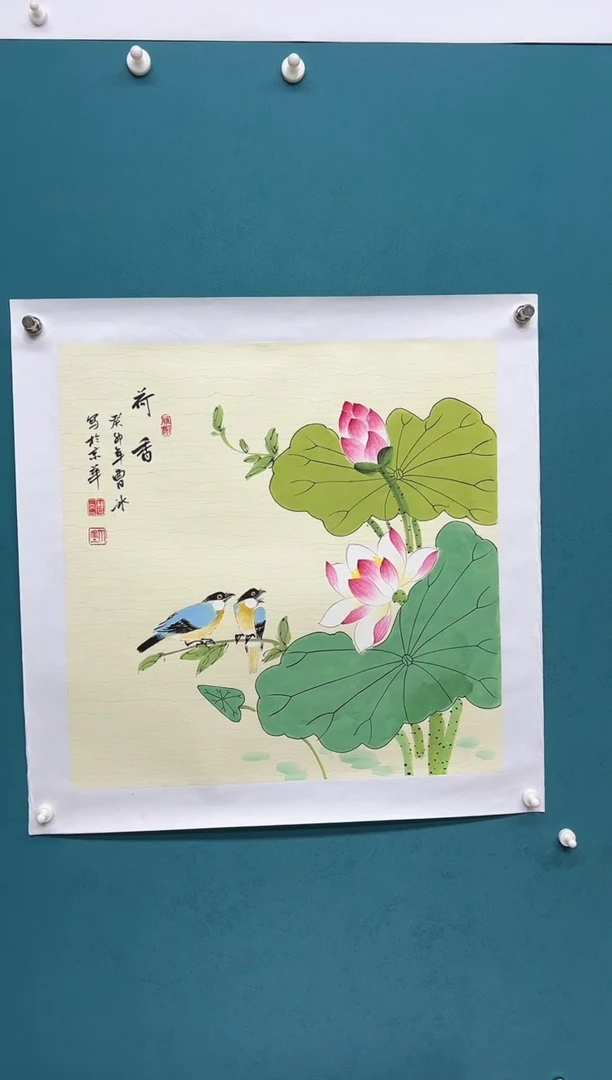 荷香
癸卯年曾冰
写于京華